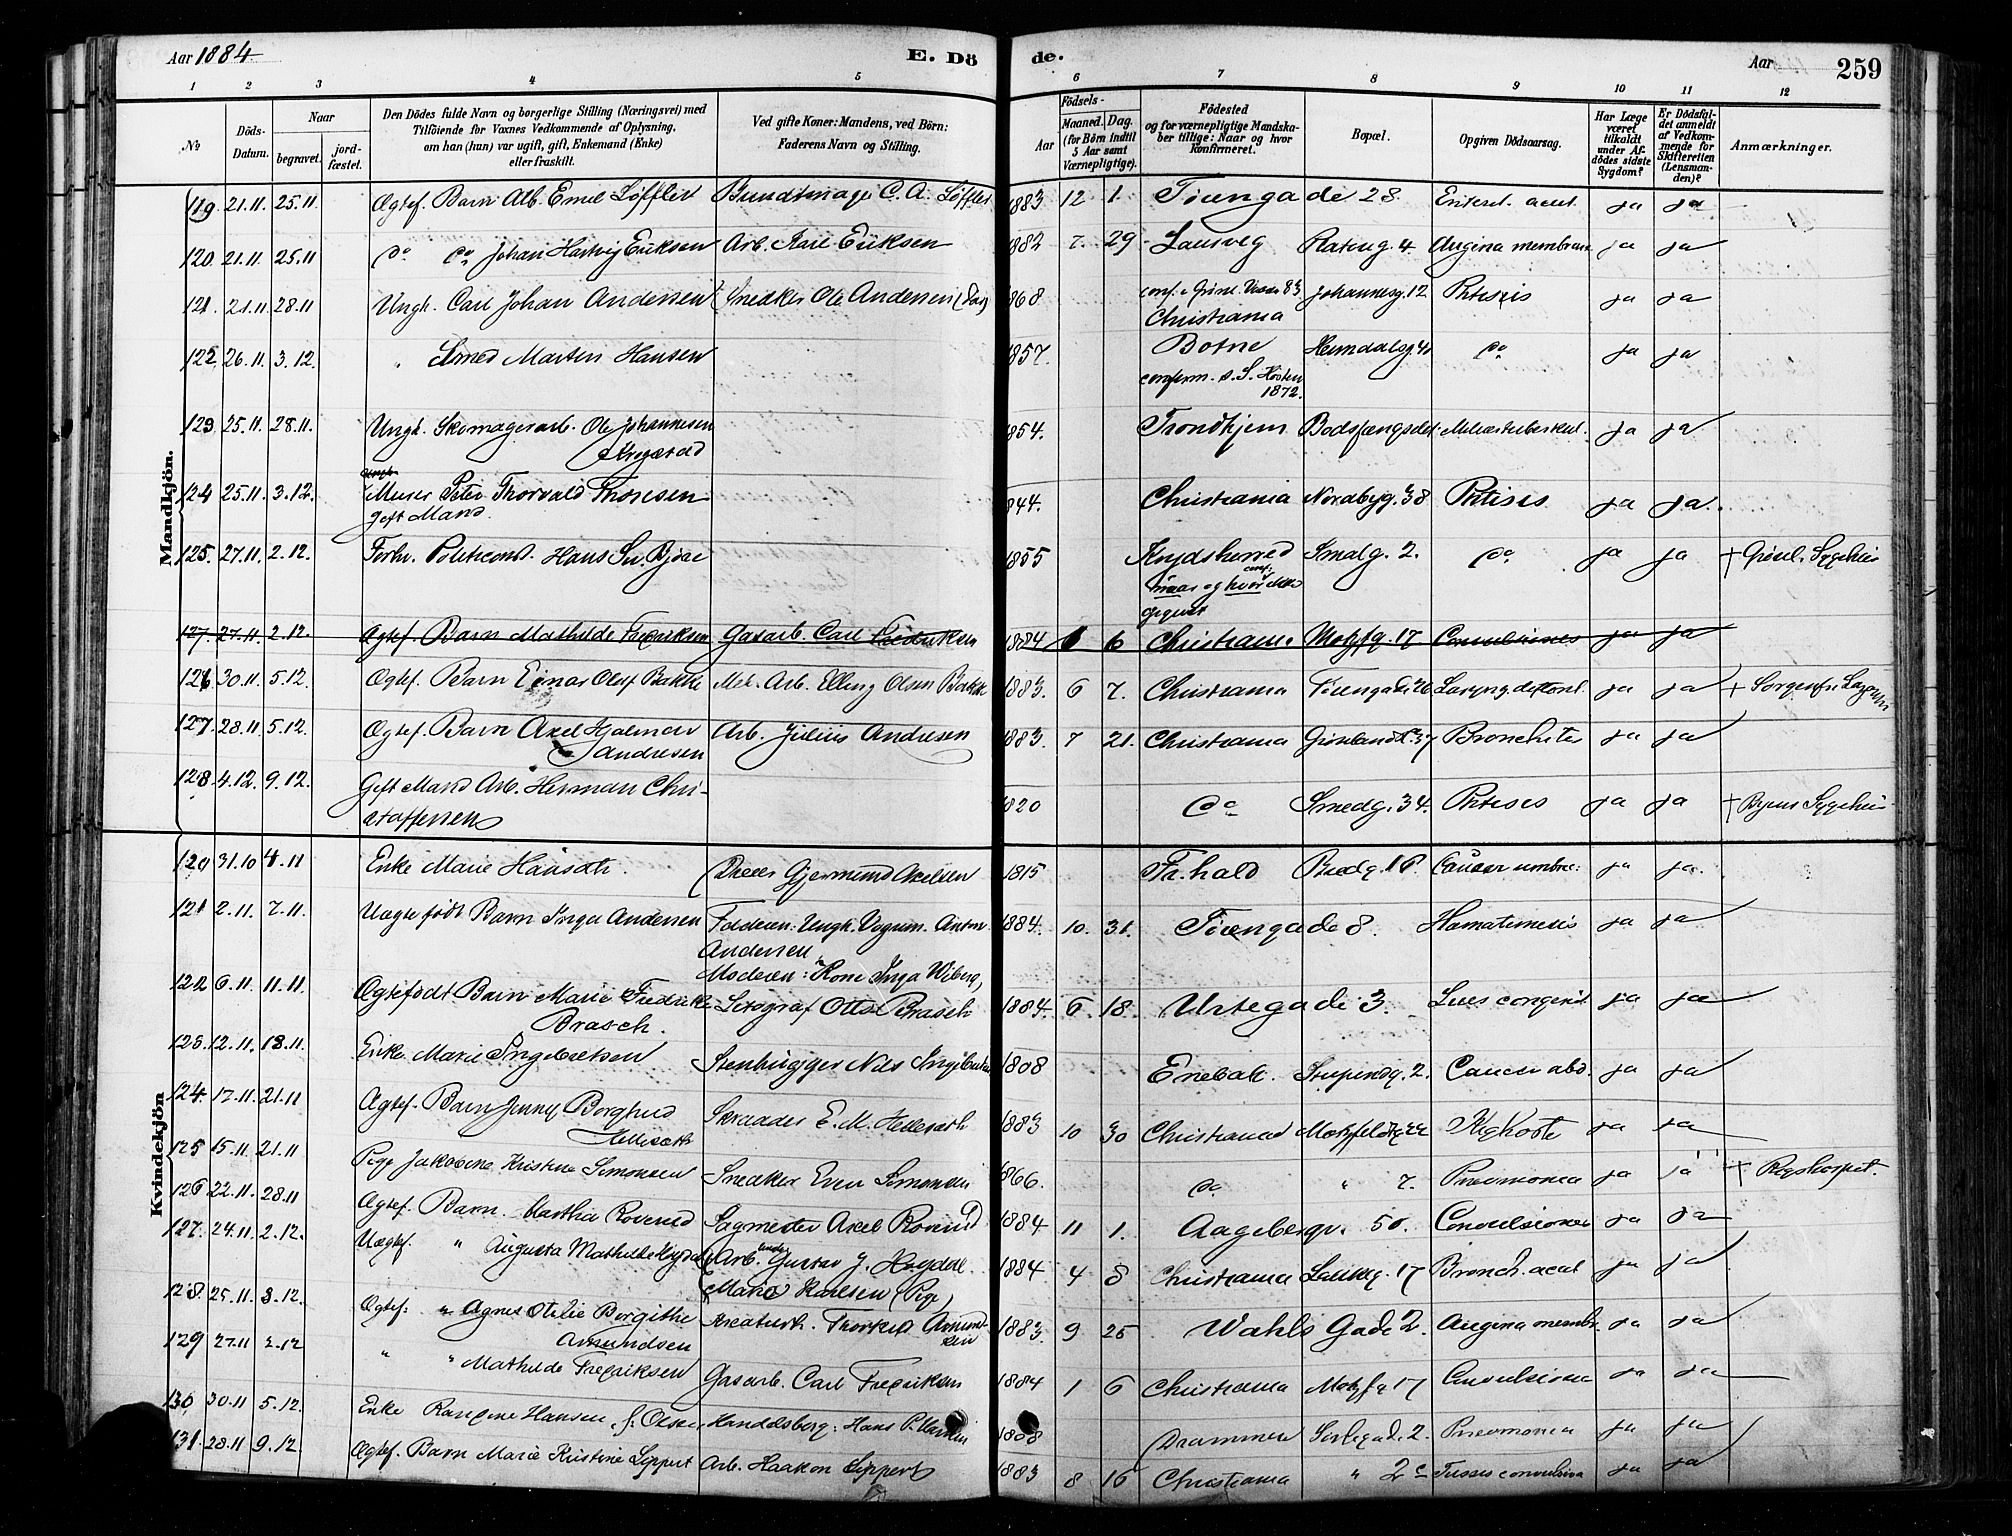 Aar 1884
E. Dö
de.
Aar
259
1 2 3 4 5 6 7 8 9 10 11 12
№
Döds-Datum.
Naar
begravet.
jord-fæstet.
Den Dödes fulde Navn og borgerlige Stilling (Næringsvei) med
Tilföiende for Voxnes Vedkommende af Oplysning,
om han (hun) var ugift, gift, Enkemand (Enke)
eller fraskilt.
Ved gifte Koner: Mandens, ved Börn:
Faderens Navn og Stilling.
Födsels-
Aar
Maaned.
Dag.
(for Börn indtil
5 Aar samt
Værnepligtige).
Födested
og for værnepligtige Mandska-
ber tillige: Naar og hvor
konfirmeret.
Bopæl.
Opgiven Dödsaarsag.
Har Læge
været
tilkaldt
under Af-
dödes sidste
Sygdom?
Er Dödsfal-
det anmeldt
af Vedkom-
mende for
Skifteretten
(Lensman-
den)?
Anmærkninger.
Mandkjön.
119. 21.11. 25.11. Ægtef. Barn Alb. Emil Löffler Bundtmager C. A. Löffler 1883 12 1. Töiengade 28. Enterit. acut. ja ja
120. 21.11. 25.11 Do Do Johan Hartvig Eriksen Arb. Karl Eriksen 1882 7. 29 Laurvig Platoug. 4 Angina membran ja ja
121. 21.11. 28.11 Ungk. Carl Johan Andersen (Snedker Ole Andersen (Far) 1868 conf. i Grönl. 83
Christiania Johannesg. 12 Phtisis ja ja
122. 26.11. 3.12. " Smed Marten Hansen 1857. Botne Heimdalsg. Do ja ja
conferm. Hösten
1872.
123. 25.11. 28.11. Ungk. Skomagerarb. Ole Johannesen
1854. Trondhjem Bodsfængslet Miliærtuberkul. ja ja
124 25.11. 3.12. Murer Peter Thorvald Thoresen
gift Mand. 1844. Christiania Nordbyg. 38 Phtisis ja ja.
125. 27.11. 2.12. Forhv. Politiconst. Hans Björe 1855 Krydsherred Smalg. 2. Do ja ja † Grönl. Sygehus
naar og hvor conf. ikke
opgivet
127. 27.11. 2.12. Ægtef. Barn Mathilde Fredriksen Gasarb. Carl Fredriksen 1884 6 Christiania Motzfg. 17 Convulsiones ja ja
126 30.11. 5.12. Ægtef. Barn Einar Olaf Bakke Mek. Arb. Elling Olsen Bakke 1883. 6 7. Christiania Töiengade 26 ja ja † Sorgenfri
127. 28.11. 5.12. Ægtef. Barn Axel Hjalmar
Andresen Arb. Julius Andresen 1883. 7 21. Christiania Grönland 37 Bronchitis ja ja
128. 4.12. 9.12. Gift Mand Arb. Herman Chri-
stoffersen 1820 Do Smedg. 34. Phtisis ja ja † Byens Sygehus
Kvindekjön
120 31.10 4.11 Enke Marie (Gjermund Axelsen 1815 Fr.hald Bredg. 16. Cancer ja ja.
121 2.11. 7.11. Uægtefödt Barn Inga Andersen Faderen: Ungk. Anton
Andersen
Moderen: Kone Inga Wiberg, 1884. 10. 31. Töiengade 8. Hæmatemesis ja ja
122 6.11. 11.11. Ægtefödt Barn Marie Fredrikke
Brasch. Litograf Otto Brasch 1884. 6. 18. Urtegade 3. Lues congenit. ja ja
123. 12.11. 18.11. Enke Marie Ingebretsen Stenhugger Nils Ingebretsen 1808 Enebak. 2. Cancer abd. ja ja
124. 17.11. 21.11 Ægtef. Barn Jenny Borghild
Skrædder E. M. 1883 10 30 Christiania Motzfeldtg. 22 Kighoste ja ja
125 15.11. 21.11 Pige Jakobine Kristine Simonsen Snedker Even Simonsen 1866. Do " 7. Pneumonia ja ja † Rigshospit.
126 22.11. 28.11 Ægtef. Barn. Martha Sagmester Axel 1884 11 1. Aagebergv. 50. Convulsioner ja ja
127. 24.11. 2.12. Uægtef. " Augusta Mathilde (Arb. Gustav J. Høydal
(Marie Karlsen (Pige) 1884 4 8 Christiania 17 Bronch. acut ja ja
128. 25.11. 3.12. Ægtef. " Agnes Otilie Borgithe
Amundsen Thorkild Amund-
sen 1883. 9 25 Wahls Gade 2. Angina membr. ja ja
129 27.11 2.12 " " Mathilde Fredriksen Gasarb. Carl Fredriksen 1884 1 6 Christiania Motzfg. 17 Convulsiones ja ja
130 30.11 5.12. Enke Hansen f. Olsen Handelsborg: Hans P. Hansen 1808 Drammen 2. Pneumonia ja ja
131. 28.11 9.12 Ægtef. Barn Marie Kristine Lippert Arb. Haakon Lippert 1883 8 16 Christiania " 2c Tussis convulsiva ja ja